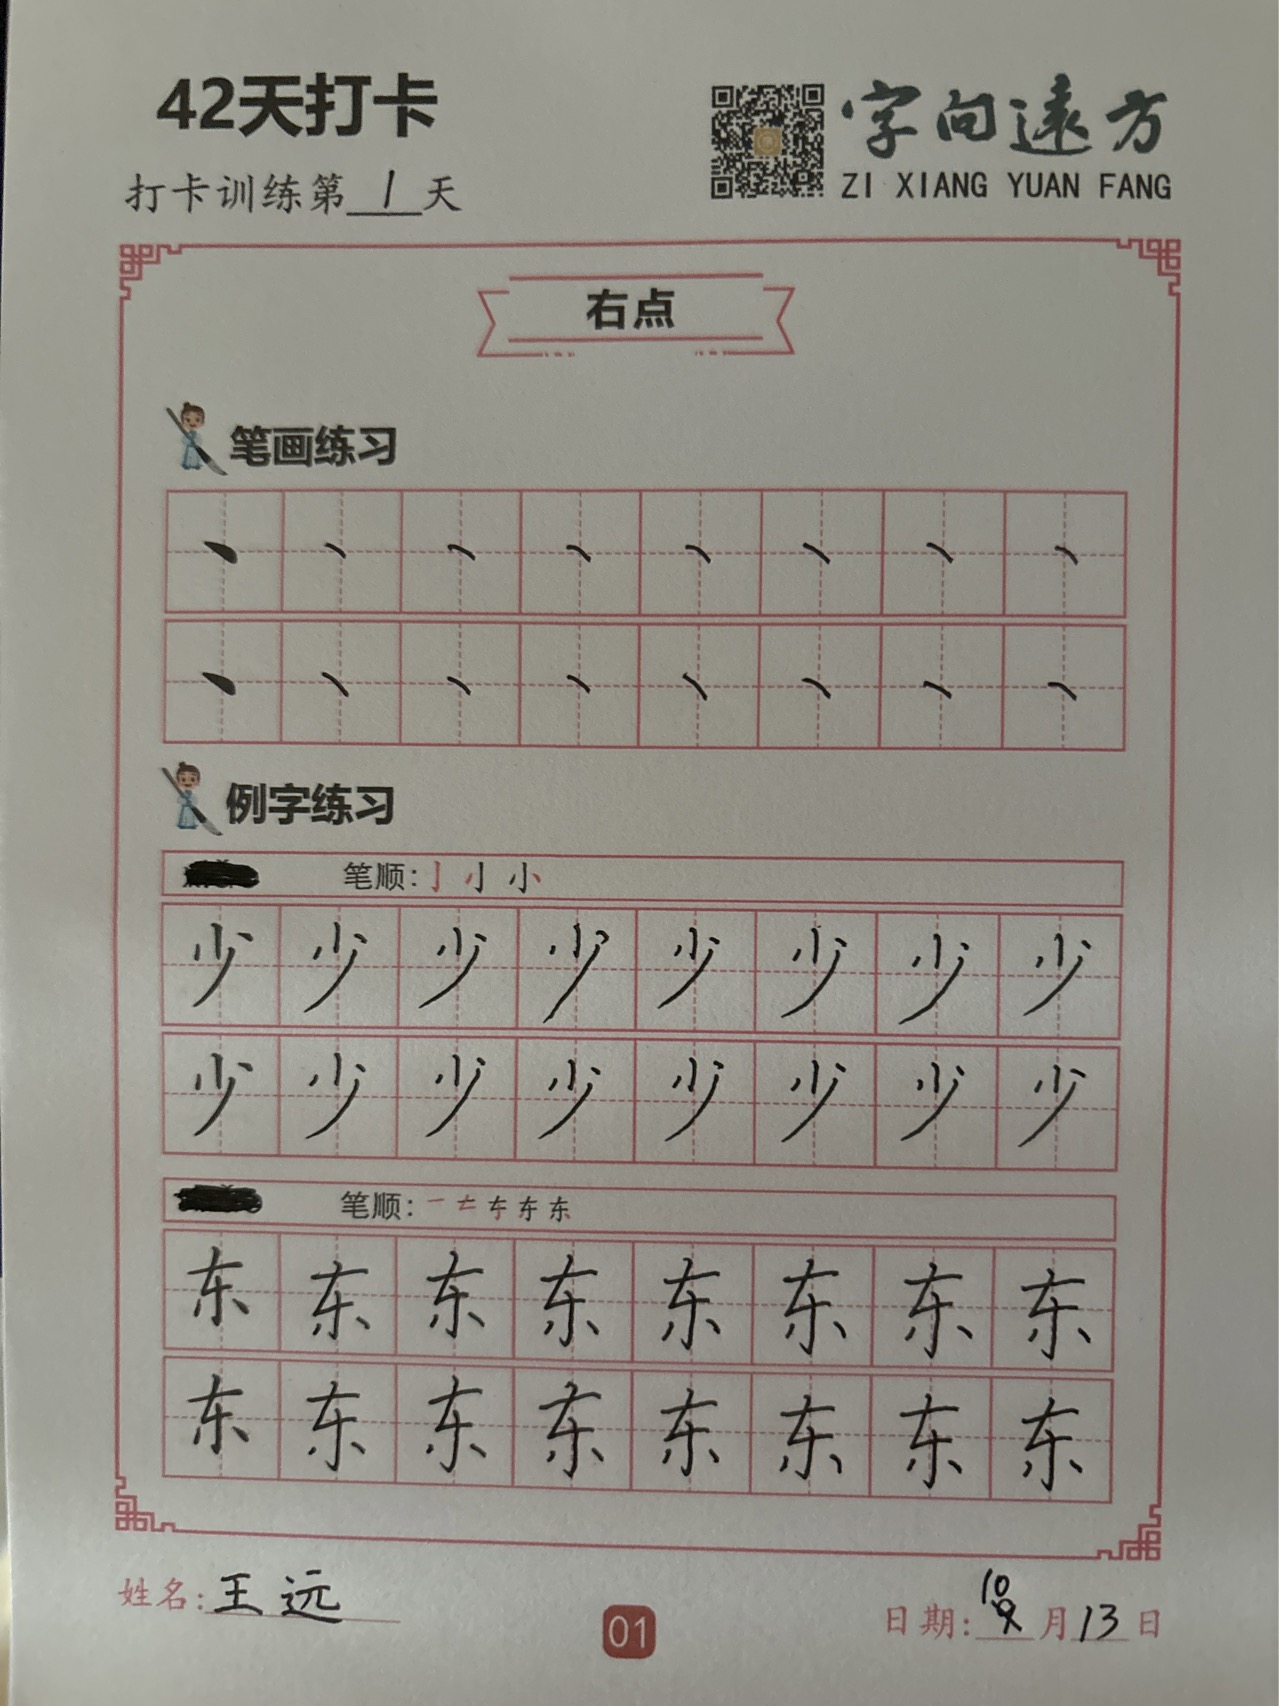 42天打卡
字向遠方
打卡训练第1天
ZI XIANG YUAN FANG
右点
笔画练习
丶 丶 丶 丶 丶 丶 丶 丶
丶 丶 丶 丶 丶 丶 丶 丶
例字练习
笔顺: 亅 小
少 少 少 少 少 少 少 少
少 少 少 少 少 少 少 少
笔顺: 一 东
东 东 东 东 东 东 东 东
东 东 东 东 东 东 东 东
姓名: 王远
01
日期: 10月13日